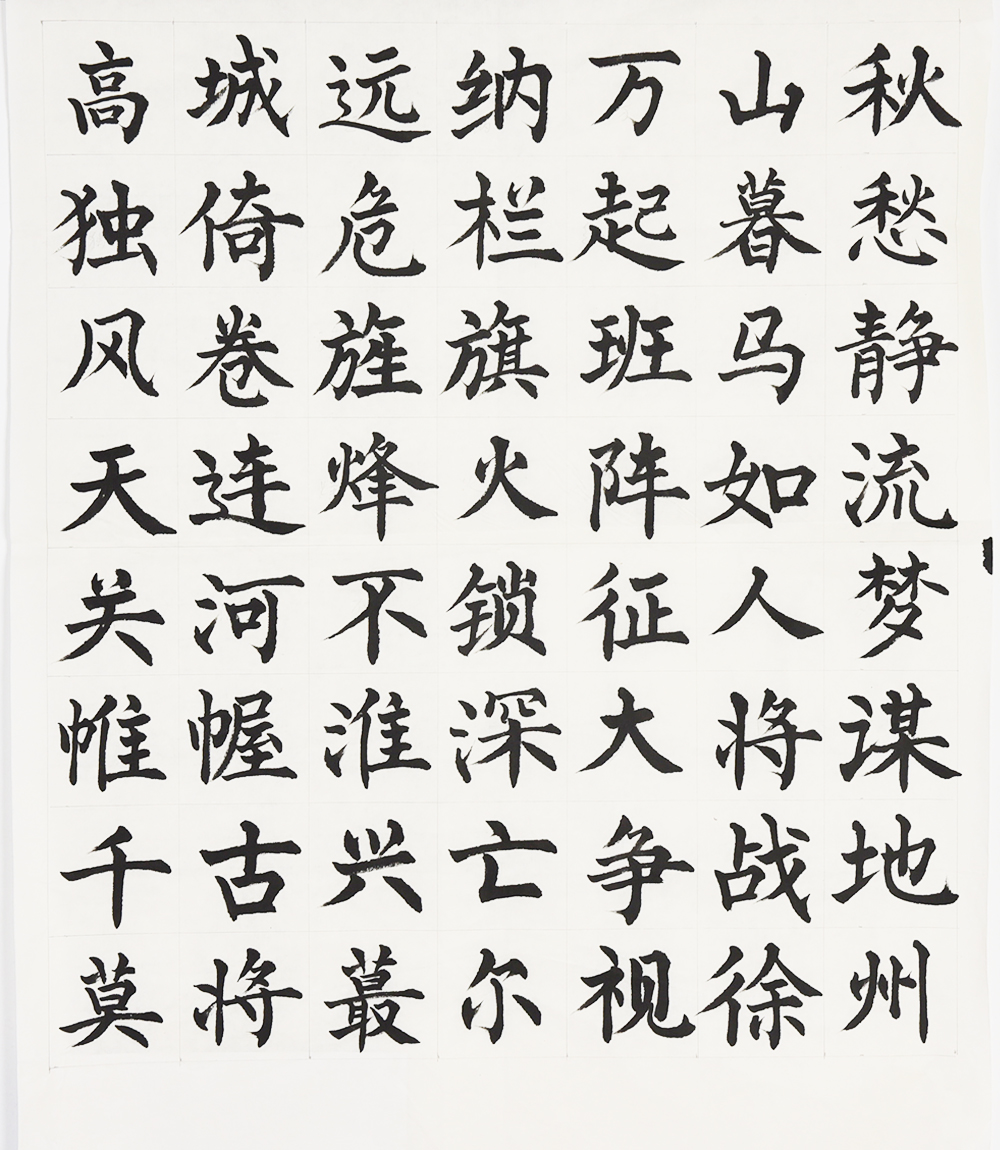 高城远纳万山秋
独倚危栏起暮愁
风卷旌旗班马静
天连烽火阵如流
关河不锁征人梦
帷幄淮深大将谋
千古兴亡争战地
莫将蕞尔视徐州